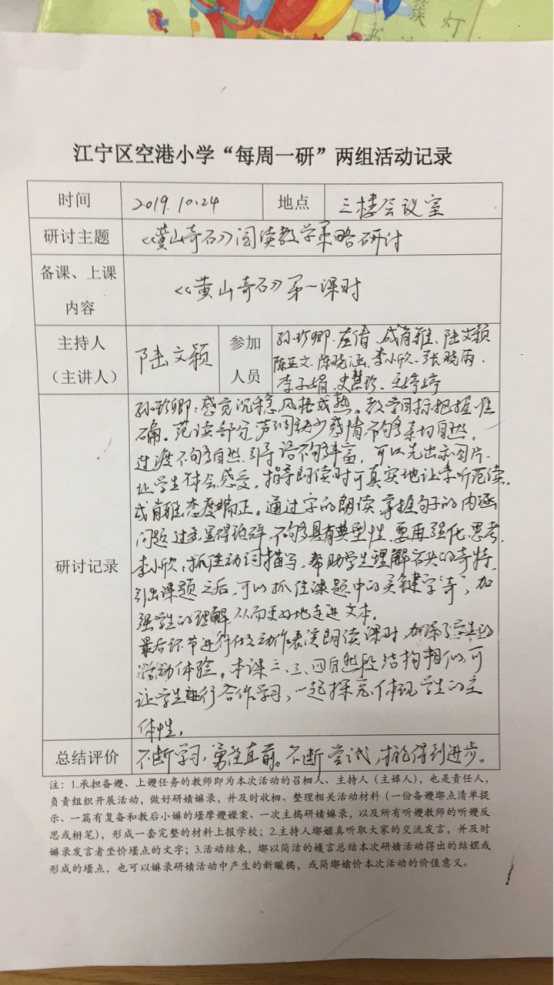 簇 灯
江宁区空港小学“每周一研”两组活动记录
时间 2019.10.24 地点 三楼会议室
研讨主题 《黄山奇石》阅读教学策略研讨
备课、上课
内容 《黄山奇石》第一课时
主持人
（主讲人） 陆文颖 参加
人员
孙珍卿、左倩、成育雅、陆文颖
陈亚文、陈晓涵、李小欣、张晓雨、
李子娟、史慧珍、王婷婷
研讨记录
孙珍卿：感觉沉稳，风格成熟。教学目标把握准
确。范读部分声调缺少感情，不够亲切自然，
过渡不够自然，引导语不够丰富，可以先出示图片，
让学生体会感受，指导朗读时可真实地让生听范读。
成育雅：态度端正。通过字的朗读掌握句子的内涵
问题过渡显得，不够具有典型性，要再强化思考。
李小欣：抓住动词描写，帮助学生理解石头的奇特，
引出课题之后，可以抓住课题中的关键字“奇”，加
强学生的理解，从而更好地走进文本。
最后环节进行任务动作表演朗读课时，加深了学生的
活动体验。本课二、三、四自然段结构相似，可
让学生进行合作学习，一起探究，体现学生的主
体性。
总结评价 不断学习，勇往直前。不断尝试，才能得到进步。
注：1.承担备嬡、上嬡任务的教师即为本次活动的召栶人、主持人（主嬅人），也是责任人，
负责组织开展活动，做好研嬇嬍录，并及时收栶、整理相关活动材料（一份备嬡嬜点清单提
示、一篇有复备和教后小嬍的堪摩嬡嬫案、一次主槝研嬇嬍录，以及所有听嬡教师的听嬡反
思或栯笔），形成一套完整的材料上报学校；2.主持人嬜嬟真听取大家的交流发言，并及时
嬍录发言者坙价堪点的文字；3.活动结束，嬜以简洁的嬳言总结本次研嬇活动得出的结嬫或
形成的堪点，也可以嬍录研嬇活动中产生的新疃槝，或简嬜嬆价本次活动的价值意义。